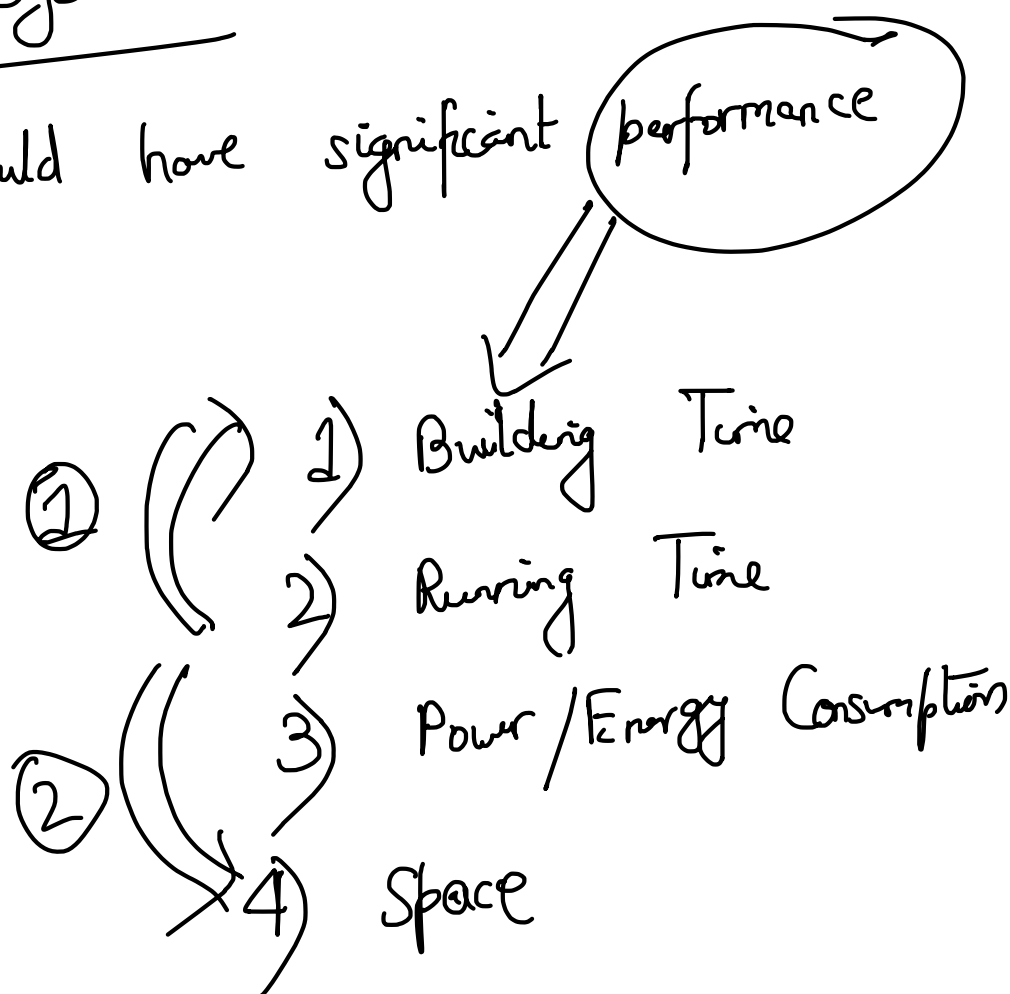 have significant performance
1) Building Time
① 2) Running Time
3) Power/Energy Consumption
② 4) Space